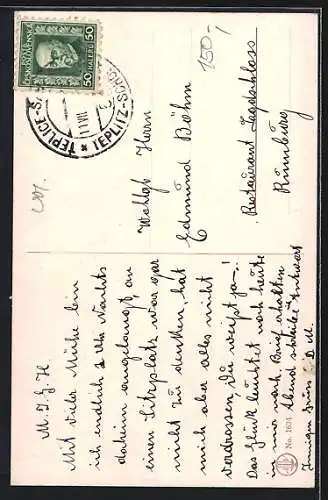 ČESKOSLOVENSKO
50 HALÉŘŮ 50
TEPLICE-ŠANOV * TEPLITZ-SCHÖNAU
VIII
150,-
Wohlgb Herrn
Edmund Böhm
Restaurant Jagdschloss
Rumburg
M. I. G. H.
Mit vieler Mühe bin
ich endlich 2 Uhr Nachts
daheim angelangt, an
einen Sitzplatz war gar
nicht zu denken, hat
mich aber alles nicht
verdrossen Du weißt ja –!
Das Glück leuchtet noch heute
in mir nach Brief erhalten
Abend Antwort
Innigen Gruß D. M.
No. 1631